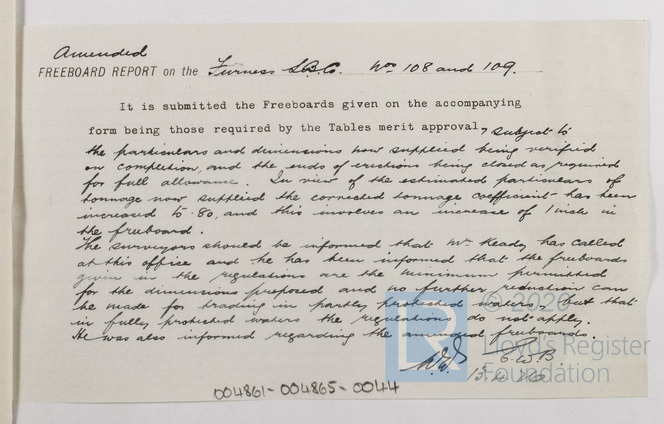 Amended
FREEBOARD REPORT on the Furness S.B.Co. Nos 108 and 109.
It is submitted the Freeboards given on the accompanying
form being those required by the Tables merit approval, subject to
the particulars and dimensions now supplied being verified
on completion, and the ends of erections being closed as required
for full allowance. In view of the estimated particulars of
tonnage now supplied the corrected tonnage coefficient has been
increased to .80, and this involves an increase of 1 inch in
the freeboard.
The surveyors should be informed that Mr. Heady has called
at this office and he has been informed that the freeboards
given in the regulations are the minimum permitted
for the dimensions proposed and no further reduction can
be made for trading in partly protected waters, but that
in fully protected waters the regulations do not apply.
He was also informed regarding the amended freeboards.
© 2020
Lloyd's Register
Foundation
LR
E.W.B.
004861-004865-0044